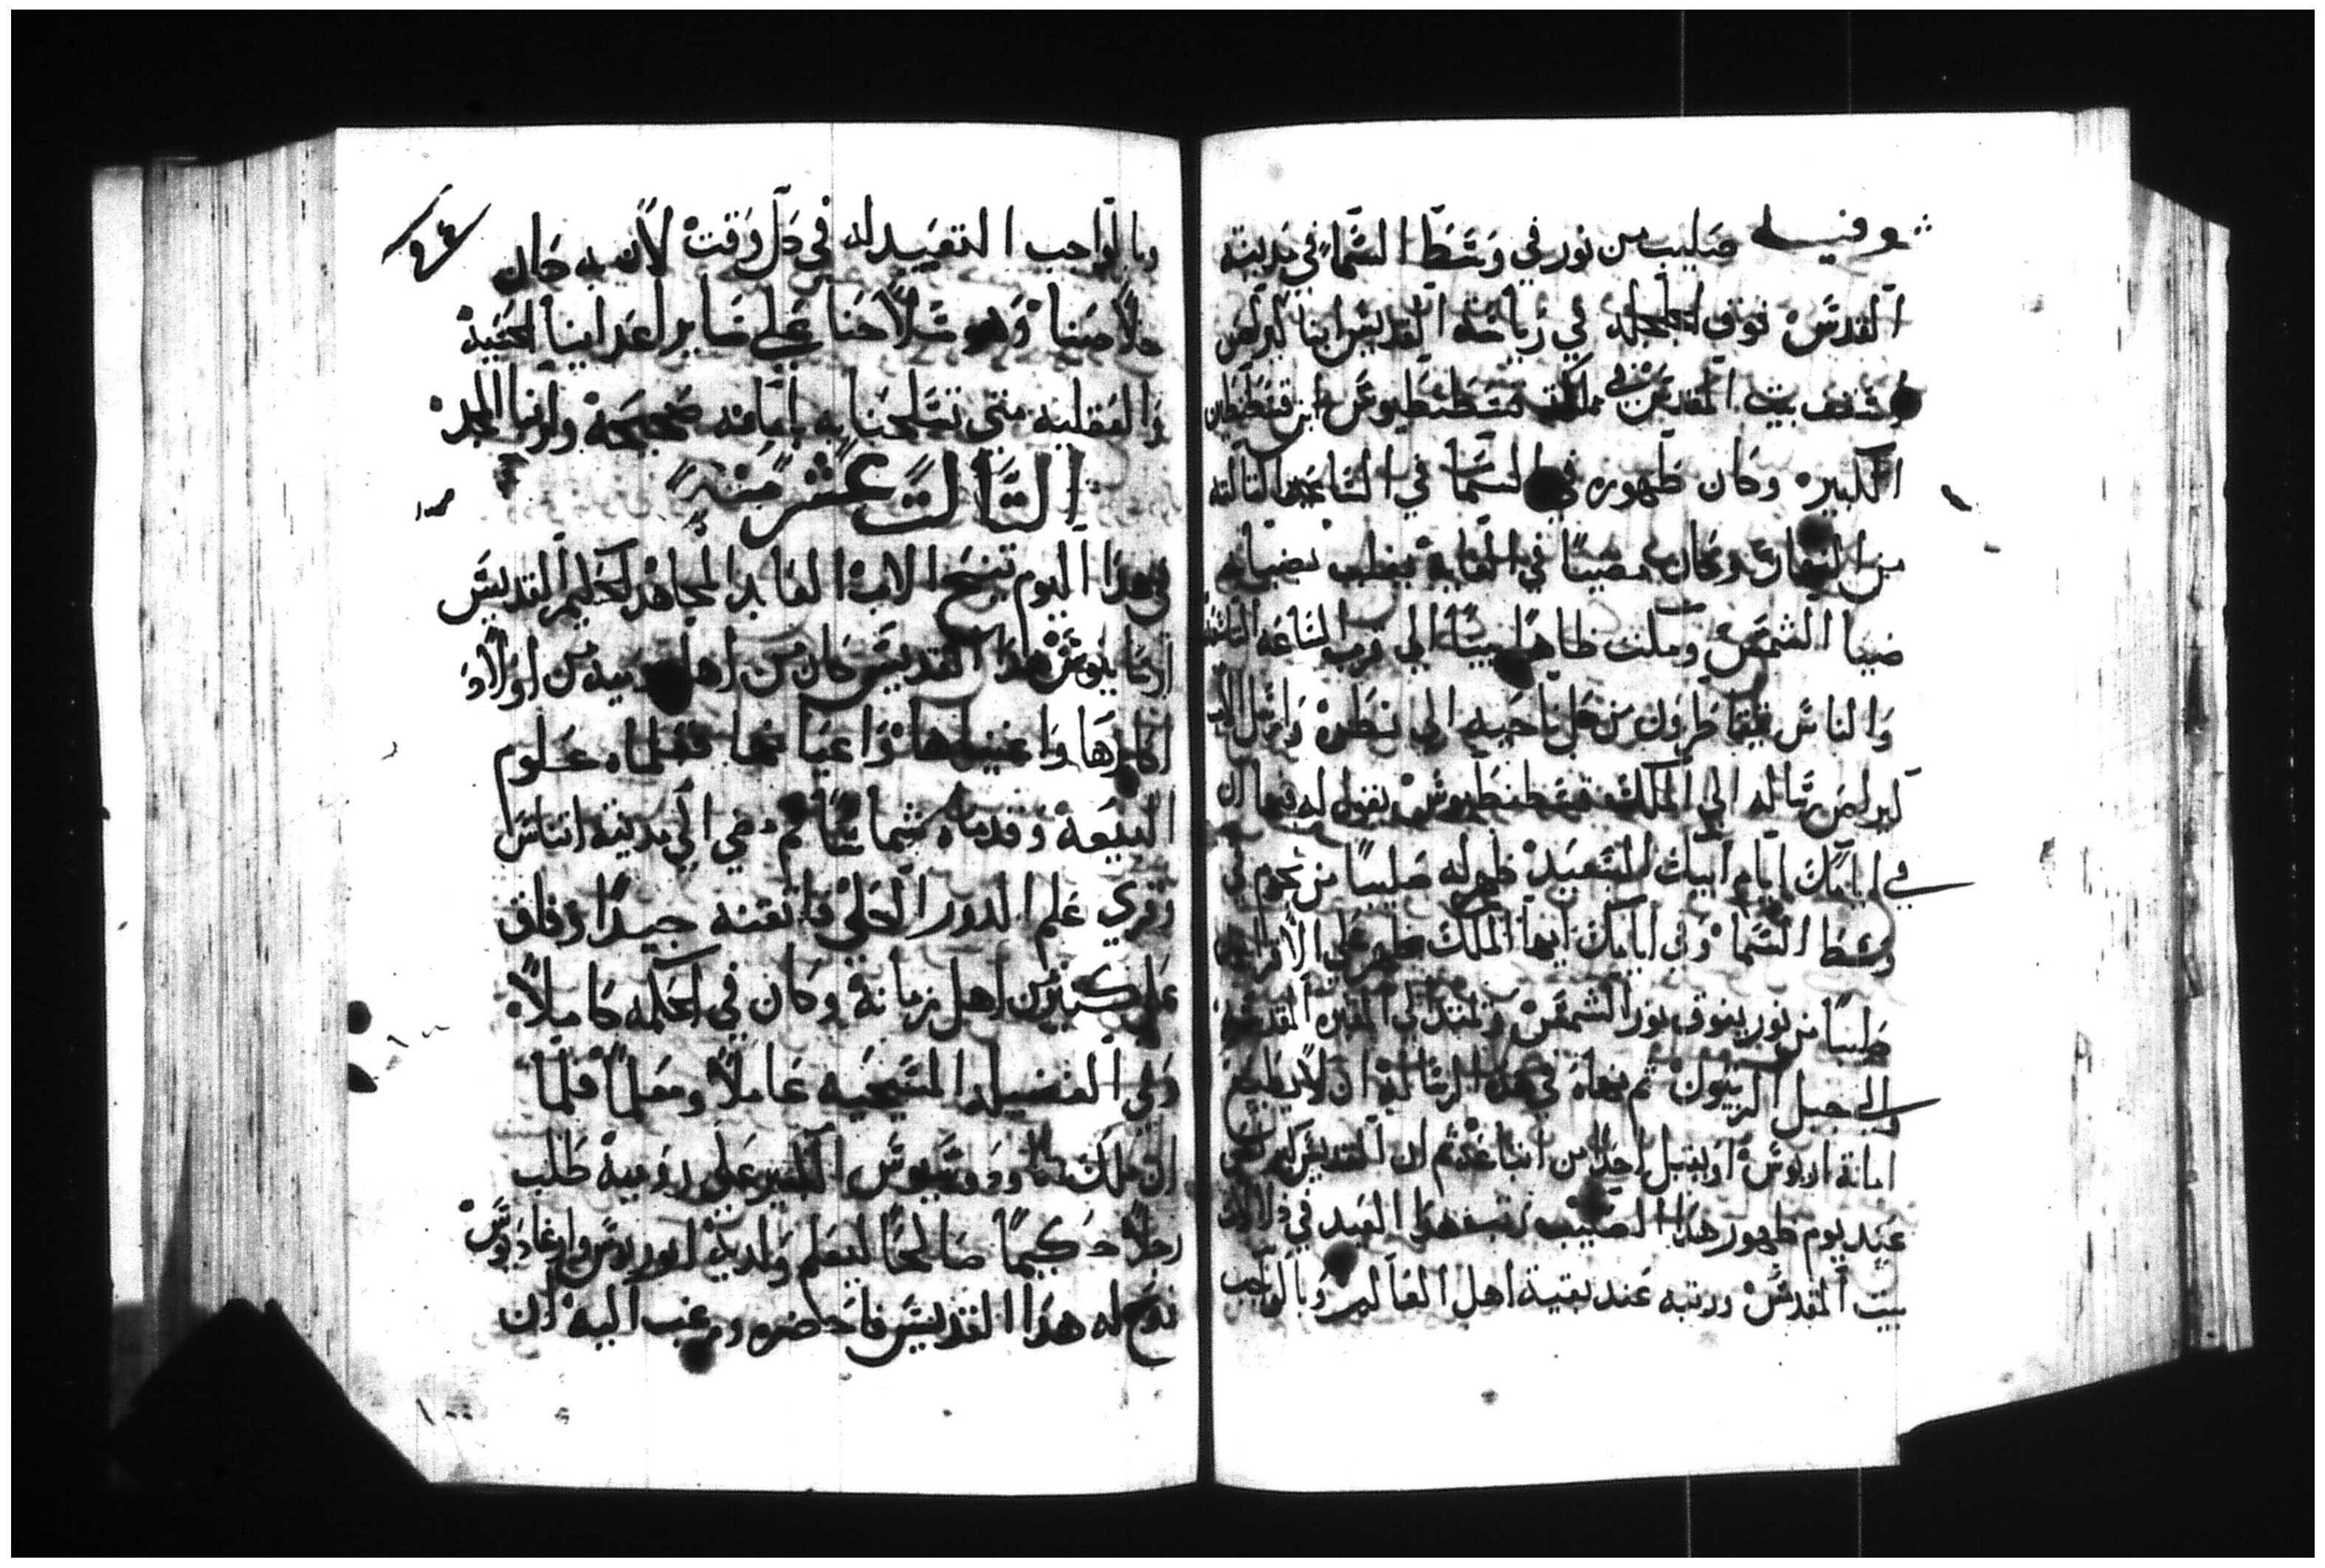 وفيه صليب من نور في وسط السماء في مدينة
القدس فوق الجلجلة في رياسة القديس انبا كيرلس
اسقف بيت المقدس في مملكة قسطنطيوس ابن قسطنطين
الكبير وكان ظهوره في السما في الساعة التالته
من النهار وكان مضيا في الغاية يغلب بضيايه
ضيا الشمس ومكث ظاهرا بينا الي قرب الساعة التاسعة
والناس يتقاطرون من كل ناحية الي نظره وارسل الاب
كيرلس رساله الي الملك قسطنطيوس يقول له فيها ان
في ايام ابيك السعيد ظهر له صليبا من نجوم في
وسط السما وفي ايامك ايها الملك ظهر علي الاقرانيون
صليبا من نور يفوق نور الشمس ويمتد الي القبر المقدس
والي جبل الزيتون ثم نهاه في هذه الرساله ان لا يطيع
امانة اريوس او يقبل احدا من اتباعه ثم ان القديس كيرلس
عيد يوم ظهور هذا الصليب لذلك الان
بيت المقدس ورتبه عند بقية اهل العالم وبالواجب
وبالواجب التعييد له في كل وقت لان به كان
خلاصنا وهو سلاحنا علي ساير اعداينا الحسية
والعقلية متي تسلحنا به بامانه صحيحة ولربنا المجد
التالت عشر منه
في هذا اليوم تنيح الاب العابد المجاهد الحكيم القديس
ارسانيوس هذا القديس كان من اهل رومية من اولاد
اكابرها واغنياها واعيانها فعلماه علوم
البيعة وقدماه شماسا ثم مضي الي مدينة اتناس
وقري علم الدور الحلي فاتقنه جيدا وفاق
علي كثير من اهل زمانة وكان في الحكمه كاملا
وفي الفضيله المسيحيه عاملا ومعلما فلما
ان ملك تاودوسيوس الكبير علي رومية طلب
رجلا حكيما صالحا ليعلم ولديه انوريوس وارغاديوس
فمدح له هذا القديس فاحضره ورغب اليه ان